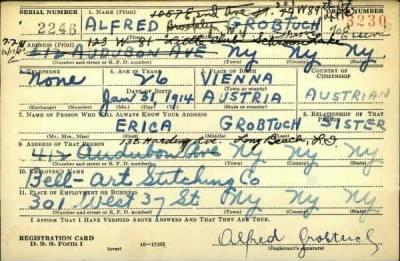 SERIAL NUMBER 1. NAME (Print) ORDER NUMBER
2246 ALFRED GROBTUCH 3230
(First) (Middle) (Last)
2. ADDRESS (Print)
412 AUDUBON AVE NY NY NY
(Number and street or R. F. D. number) (Town) (County) (State)
3. TELEPHONE 4. AGE IN YEARS 5. PLACE OF BIRTH 6. COUNTRY OF CITIZENSHIP
None 26 VIENNA
DATE OF BIRTH
Jan 21 1914 AUSTRIA AUSTRIAN
(Exchange) (Number) (Mo.) (Day) (Yr.) (State or country)
7. NAME OF PERSON WHO WILL ALWAYS KNOW YOUR ADDRESS 8. RELATIONSHIP OF THAT PERSON
ERICA GROBTUCH SISTER
(Mr., Mrs., Miss) (First) (Middle) (Last)
9. ADDRESS OF THAT PERSON
Long Beach, L.I.
412 Audubon Ave NY NY NY
(Number and street or R. F. D. number) (Town) (County) (State)
10. EMPLOYER'S NAME
Bell-Art Stitching Co
11. PLACE OF EMPLOYMENT OR BUSINESS
301 West 37 St NY NY NY
(Number and street or R. F. D. number) (Town) (County) (State)
I AFFIRM THAT I HAVE VERIFIED ABOVE ANSWERS AND THAT THEY ARE TRUE.
REGISTRATION CARD
D. S. S. Form 1 (over) 16-17105
Alfred Grobtuch
(Registrant's signature)